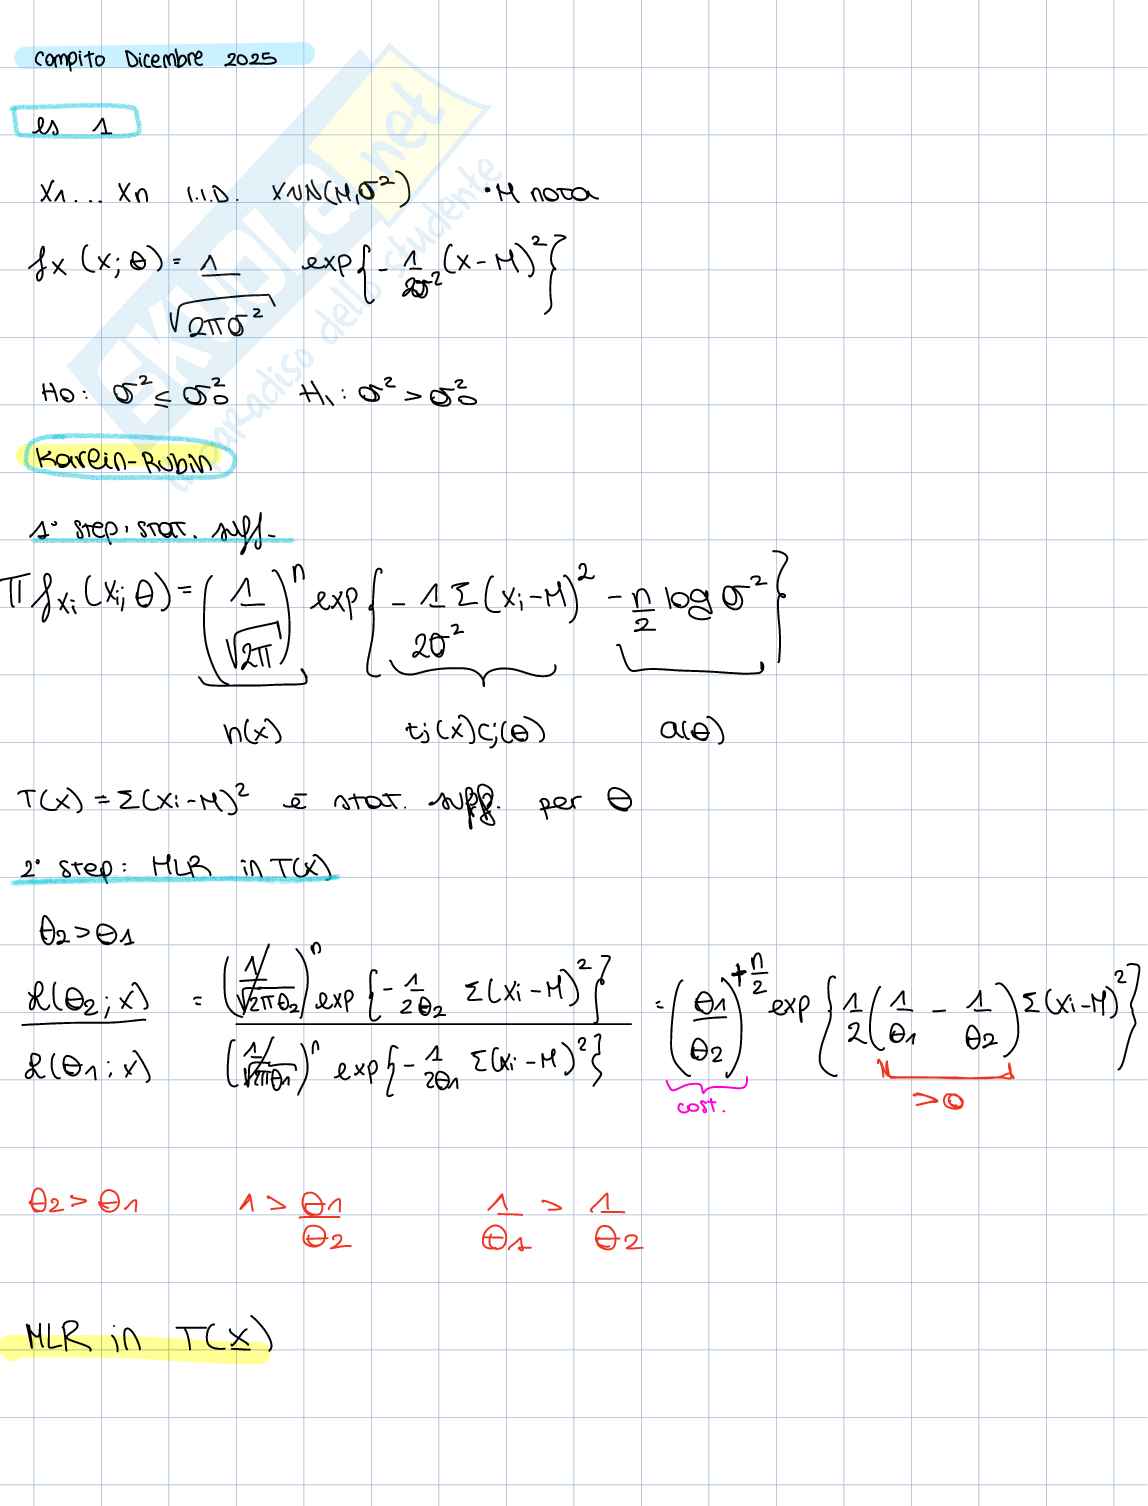 Compito Dicembre 2025
es 1
X1... Xn I.I.D. X~N(M,σ²) •M nota
fx (x; θ) = 1/√(2πσ²) exp{-1/(2σ²) (x-M)²}
H0: σ² ≤ σ0² H1: σ² > σ0²
Karein-Rubin
1° step: stat. suff.
Π fxi (xi; θ) = (1/√(2π))^n exp{-1/(2σ²) Σ(xi-M)² - n/2 log σ²}
h(x) tj(x)cj(θ) a(θ)
T(x) = Σ(xi-M)² è stat. suff. per θ
2° step: MLR in T(x)
θ2 > θ1
L(θ2; x)/L(θ1; x) = (1/√(2πθ2))^n exp{-1/(2θ2) Σ(xi-M)²} / (1/√(2πθ1))^n exp{-1/(2θ1) Σ(xi-M)²} = (θ1/θ2)^(+n/2) exp{1/2 (1/θ1 - 1/θ2) Σ(xi-M)²}
cost. >0
θ2 > θ1 1 > θ1/θ2 1/θ1 > 1/θ2
MLR in T(x)
SKUOLA.net
il paradiso dello studente